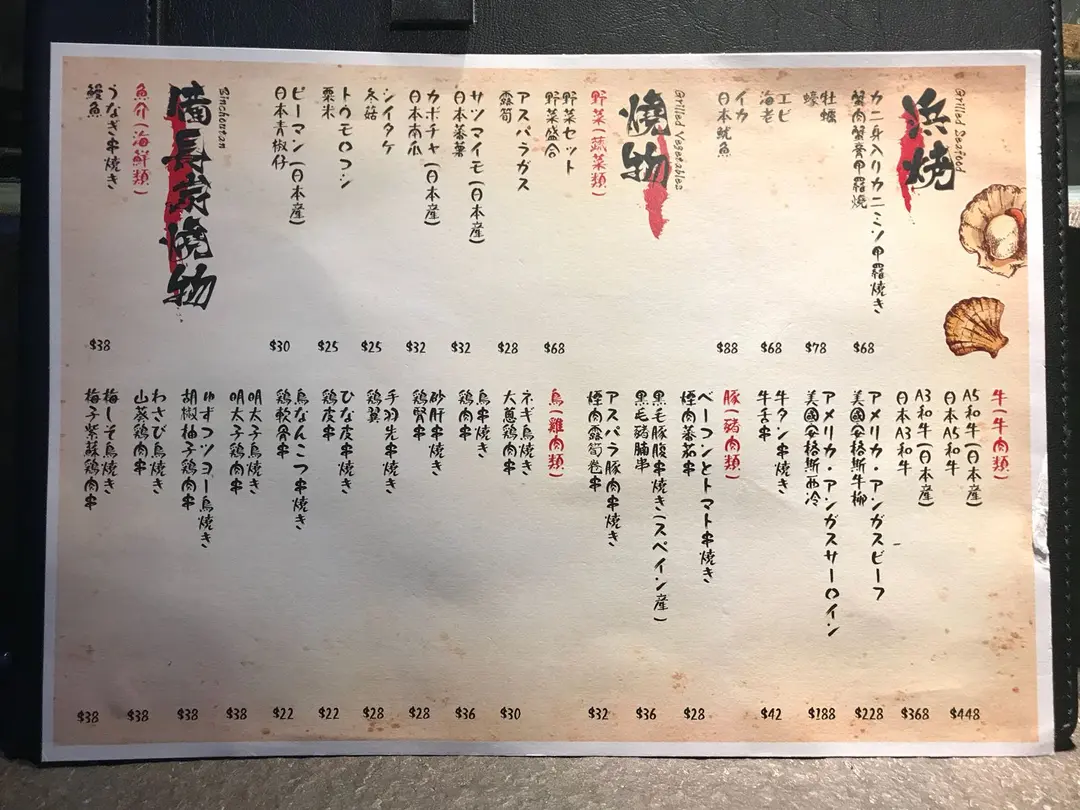 浜燒
Grilled Seafood
カニ身入りカニミソ甲羅焼き
蟹肉蟹膏甲羅燒
$68
牡蠣
蠔
$78
エビ
海老
$68
イカ
日本魷魚
$88
燒物
Grilled Vegetables
野菜(蔬菜類)
野菜セット
野菜盛合
$68
アスパラガス
露筍
$28
サツマイモ(日本産)
日本蕃薯
$32
カボチャ(日本産)
日本南瓜
$32
シイタケ
冬菇
$25
トウモロコシ
粟米
$25
ピーマン(日本産)
日本青椒仔
$30
備長炭燒物
Binchoutan
魚介(海鮮類)
うなぎ串焼き
鰻魚
$38
牛(牛肉類)
A5和牛(日本産)
日本A5和牛
$448
A3和牛(日本産)
日本A3和牛
$368
アメリカ・アンガスビーフ
美國安格斯牛柳
$228
アメリカ・アンガスサーロイン
美國安格斯西冷
$188
牛タン串焼き
牛舌串
$42
豚(豬肉類)
ベーコンとトマト串焼き
煙肉蕃茄串
$28
黒毛豚腹串焼き(スペイン産)
黑毛豬腩串
$36
アスパラ豚肉串焼き
煙肉露筍卷串
$32
鳥(雞肉類)
ネギ鳥焼き
大蔥鶏肉串
$30
鳥串焼き
鶏肉串
$36
砂肝串焼き
鶏腎串
$28
手羽先串焼き
鶏翼
$28
ひな皮串焼き
鶏皮串
$22
鳥なんこつ串焼き
鶏軟骨串
$22
明太子鳥焼き
明太子鶏肉串
$38
ゆずコショー鳥焼き
胡椒柚子鶏肉串
$38
わさび鳥焼き
山葵鶏肉串
$38
梅しそ鳥焼き
梅子紫蘇鶏肉串
$38